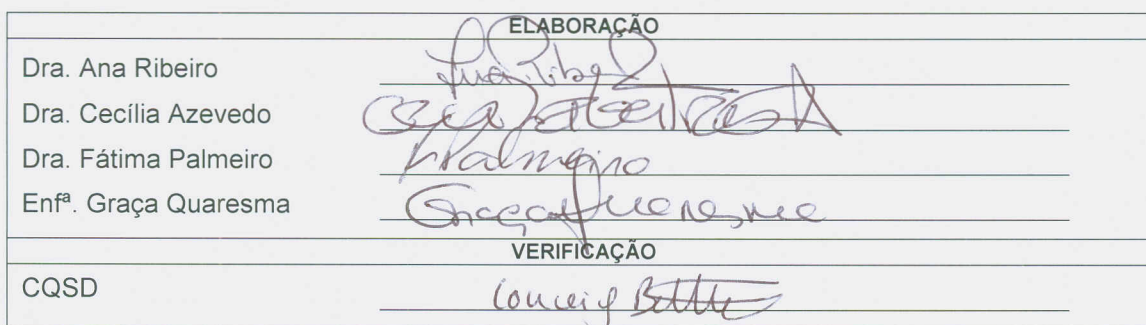 ELABORAÇÃO
Dra. Ana Ribeiro
Dra. Cecília Azevedo
Dra. Fátima Palmeiro
Palmeiro
Enfª. Graça Quaresma
Graça Quaresma
VERIFICAÇÃO
CQSD